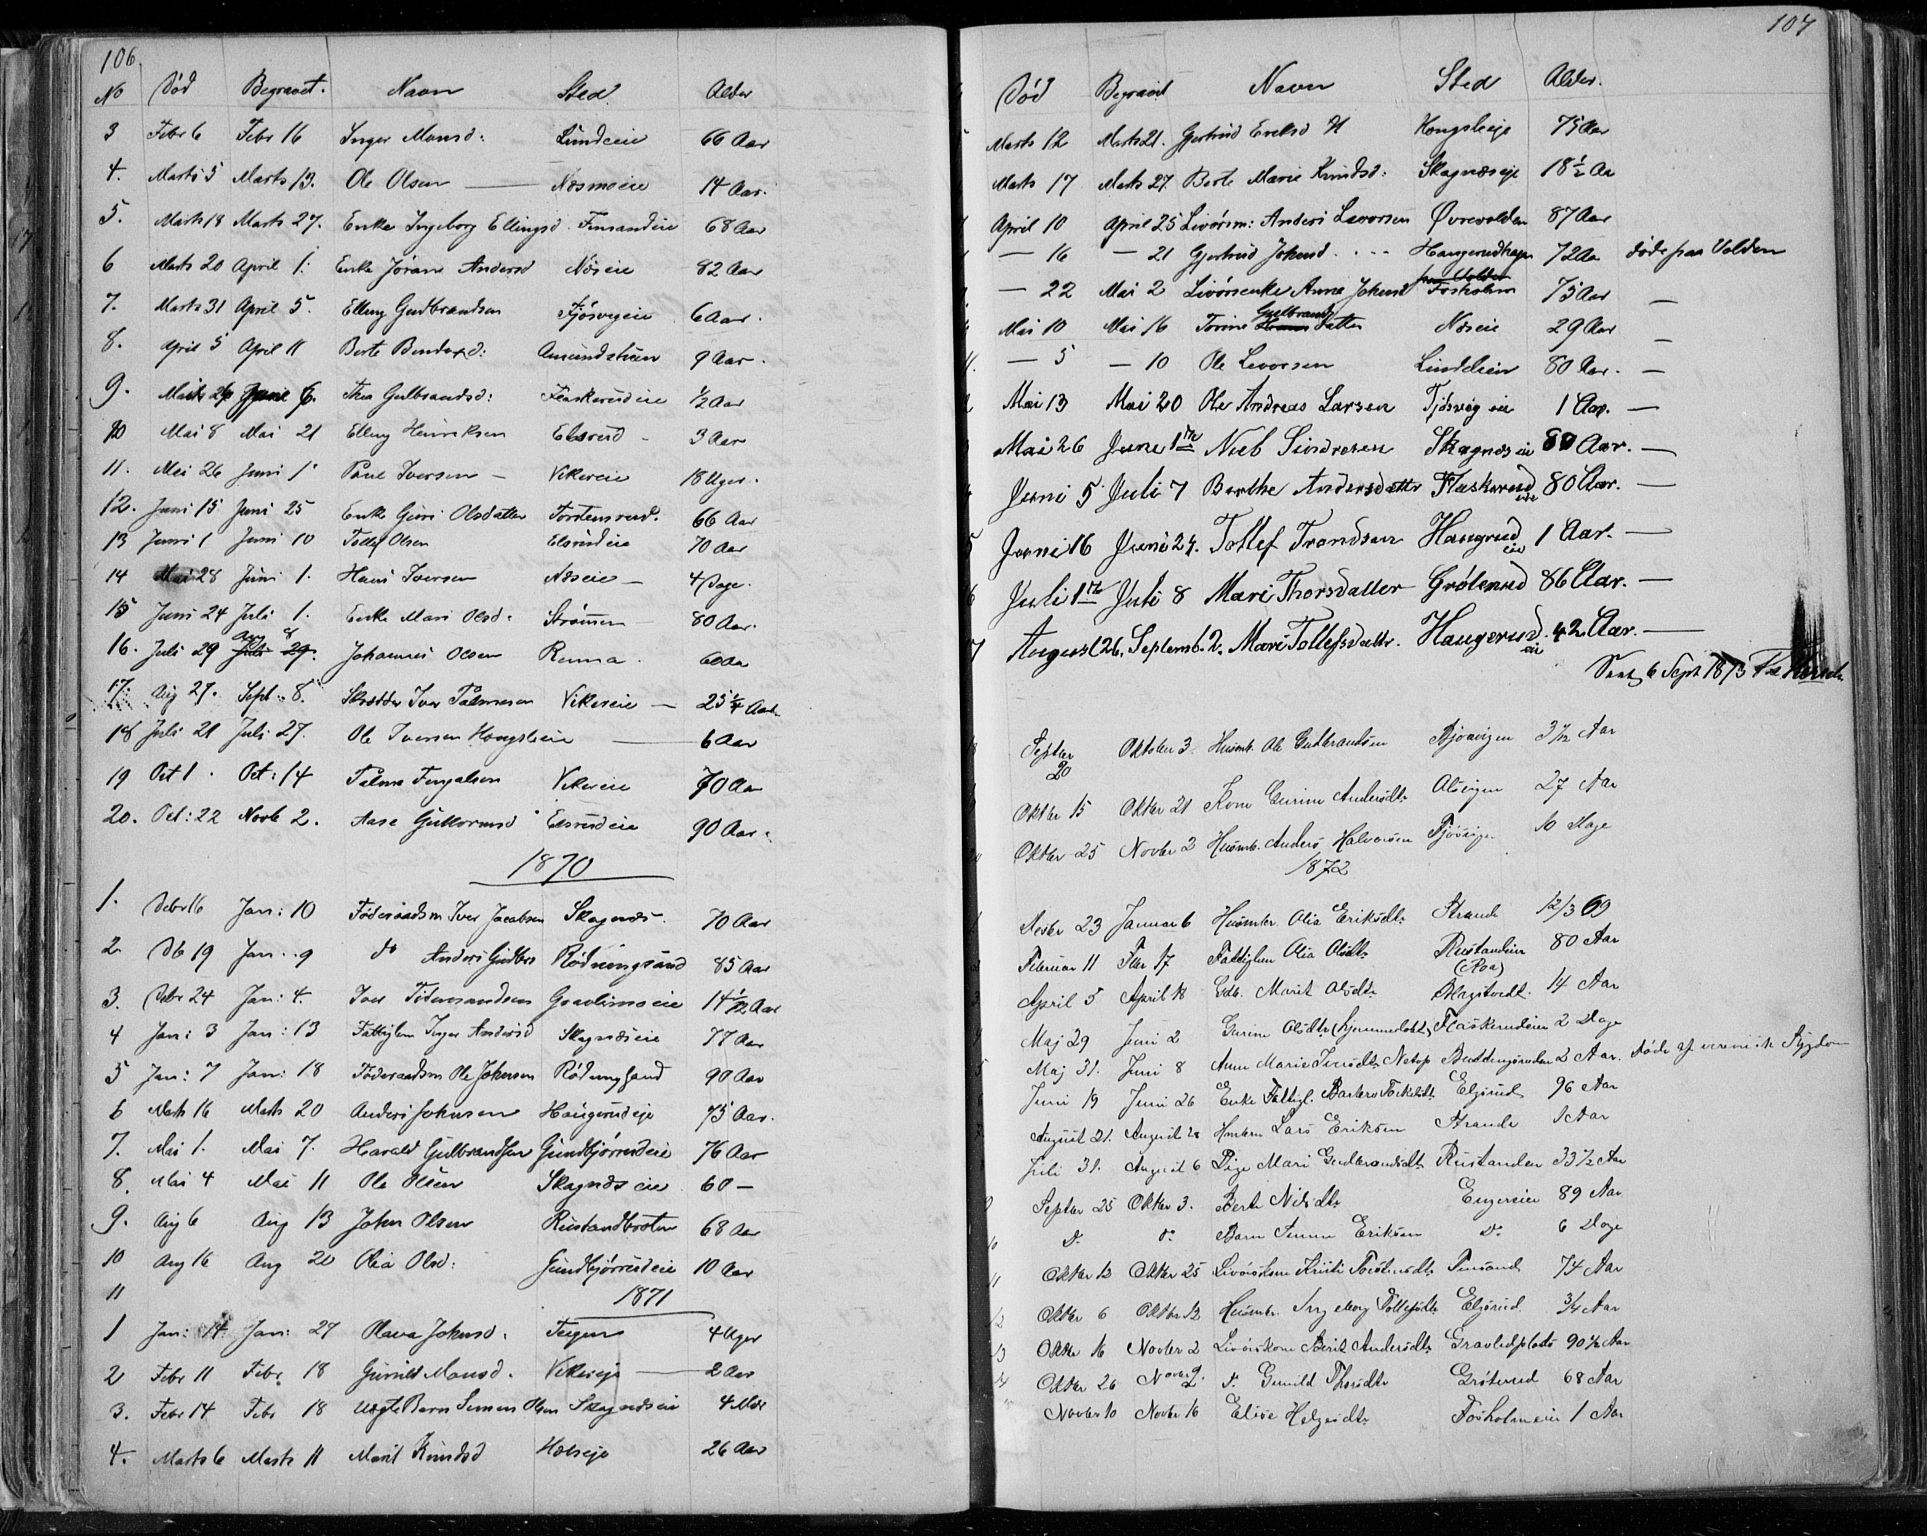 106.
No Død Begravet. Navn Sted Alder
3 Febr 6 Febr 16 Inger Monsd: Lundeie 66 Aar
4. Marts 5 Marts 13. Ole Olsen — Næsmoeie 14 Aar.
5. Marts 18 Marts 27. Enke Ingeborg Ellingsd. Finsandeie 68 Aar
6 Marts 20 April 1. Enke Jøran Andersd Næseie 82 Aar
7. Marts 31 April 5. Elling Gudbrandsen Tjøsvigeie 6 Aar.
8. April 5 April 11 Berte Amundstuen 9 Aar.
9. 26 Juni 6. Thea Gulbrandsd: Flaskerudeie ½ Aar
10 Mai 8 Mai 21 Elling Henriksen Elsrud - 3 Aar
11. Mai 26 Juni 1 Paul Iversen — Vikereie 18 Uger.
12. Juni 15 Juni 25 Enke Guri Olsdatter Torstensrud. 66 Aar
13 Juni 1 Juni 10 Tollef Olsen Elsrudeie 70 Aar
14 Mai 28 Juni 1. Hans Iversen Næseie — 4 Dage
15 Juni 24 Juli 1. Enke Mari Olsd. Strømmen 80 Aar.
16. Juli 29 Aug 8 Juli 29. Johannes Olsen Renna. 60 Aar
17. Aug 27. Sept. 8. Skrædder Iver Palmesen Vikereie — 25 ¼ Aar
18 Juli 21 Juli 27. Ole Iversen Hongsleie — 6 Aar
19 Oct 1. Oct: 14 Palme Vikereie 70 Aar
20. Oct: 22 Novb 2. Aase Guttormsd Elsrudeie 90 Aar.
1870
1. Debr 16 Jan: 10 Føderaadsm Iver Jacobsen Skagnæs. 70 Aar
2. Db 19 Jan. 9 do Anders Gulbrs Rødningsand 85 Aar
3. Debr 24 Jan: 4. Iver Gravlimoeie 14 1/12 Aar
4 Jan: 3 Jan: 13 Fattiglem Inger Andersd Skagnæseie 77 Aar
5 Jan: 7 Jan: 18 Føderaadsm Ole Johnsen Rødningsand 90 Aar
6 Marts 16 Marts 20 Anders Johnsen Haugerudeje 75 Aar.
7. Mai 1. Mai 7. Harald Gulbrandsen Gundbjørrudeie 76 Aar
8. Mai 4 Mai 11 Ole Olsen Skagnæs eie 60 —
9. Aug 6 Aug 13 John Olsen Rustandbraten 68 Aar
10 Aug 16 Aug 20 Olia Olsd: Gundbjørrudeie 10 Aar
11 1871
1 Jan: 14 Jan: 27 Olava Johnsd. Teigen 4 Uger
2 Febr 11 Febr. 18 Gunild Monsd. Vikereje — 2 Aar
3. Febr 14 Febr 18 Uægte Barn Simen Olsen Skagnæseie 4 Mdr
4. Marts 6 Marts 11 Marit Knudsd Holseje 26 Aar
107
Død Begravet Navn Sted Alder.
Marts 12 Marts 21. Gjertrud Eriksd Hongsleeje 75 Aar
Marts 17 Marts 27 Berte Marie Knudsd: Skagnæseje 18 ½ Aar
April 10 April 25 Livørsm: Anders Levorsen Øvrevolden 87 Aar
— 16 — 21 Gjertrud Johnsd. . . . Haugerudhagen 72 Aar døde paa Volden
— 22 Mai 2 Livørsenke Anne Johnsd paa Volden Fosholm 75 Aar —
Mai 10 Mai 16 Torine Gulbrands datter Næseie 29 Aar —
— 5 — 10 Ole Levorsen Lindelien 80 Aar. —
Mai 13 Mai 20 Ole Andreas Larsen Tjøsvig eie 1 Aar. —
Mai 26 June 1ste Niels Sindresen Skagnæs eie 80 Aar. —
Juni 5 Juli 7 Berthe Andersdatter Flaskerud eie 80 Aar. —
Juni 16 Juni 27. Tollef Trondsen Haugrud eie 1 Aar. —
Juli 1ste Juli 8 Mari Thorsdatter Grøterud 86 Aar. —
August 26. Septemb. 2. Mari Tollefsdattr. Haugerud eie 42 Aar. —
6 Sept 1873
Septber 20 Oktober 3. Husmb. Ole Gulbrandsen Bjøavigen 3/12 Aar
Oktbr 15 Oktbr 21 Kone Gurine Andersdtr Alsvigen 27 Aar
Oktbr 25 Novbr 2 Husmb. Anders Halvorsen Tjøsvigen 10 Dage
1872
Desbr 23 Januar 6 Husmbr. Olia Eriksdtr Strande
Februar 11 Fbr 17 Fattiglem Olia Olsdtr Rustandeien (Roa) 80 Aar
April 5 April 18 Gdb. Marit Olsdtr 14 Aar
Maj 29 Juni 2 Gurine Olsdtr (hjemmedøbt) Flaskerudeien 2 Dage
Maj 31. Juni 8 Anne Marie 2 Aar. døde af venerisk Sygdom
Juni 19 Juni 26 Enke Fattigl. Barbro Elsrud 96 Aar
August 21. August 28 Lars Eriksen Strande 1 Aar
Juli 31. August 6 Pige Mari Gudbrandsdtr Rustanden 33 ½ Aar
Septbr 25 Oktbr 3. Berte Nilsdtr Engereien 89 Aar
Do. Do. Barn Simen Eriksen Do. 6 Dage
11 Oktbr 12 Oktbr 25 Livørskone Kristi Torstensdtr Finsand 74 Aar
12 Oktbr 6 Oktbr 12 Husmbr. Ingeborg Tollefsdtr Elsrud. ¾ Aar
13 Oktbr 16 Novbr 2 Livørskone Berit Andersdtr Gravlidplads 90 ½ Aar
Oktbr 26 Novbr 9 D. Gunild Thorsdtr Grøterud 68 Aar
Novbr 10 Novbr 16 Elise Helgesdtr Fosholmeie 1 Aar